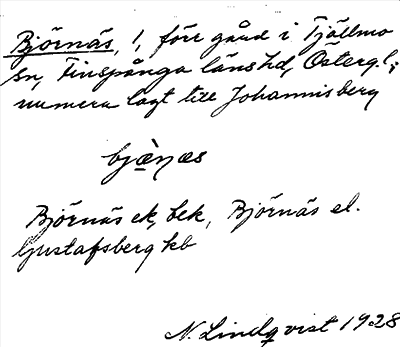 Björnäs, 1, förr gård i Tjällmo
sn, Finspånga läns hd, Österg. l;
numera lagt till Johannisberg
bjæ̀ɳæs
Björnäs ek, bek, Björnäs el.
Gustafsberg kb
N. Lindqvist 1928